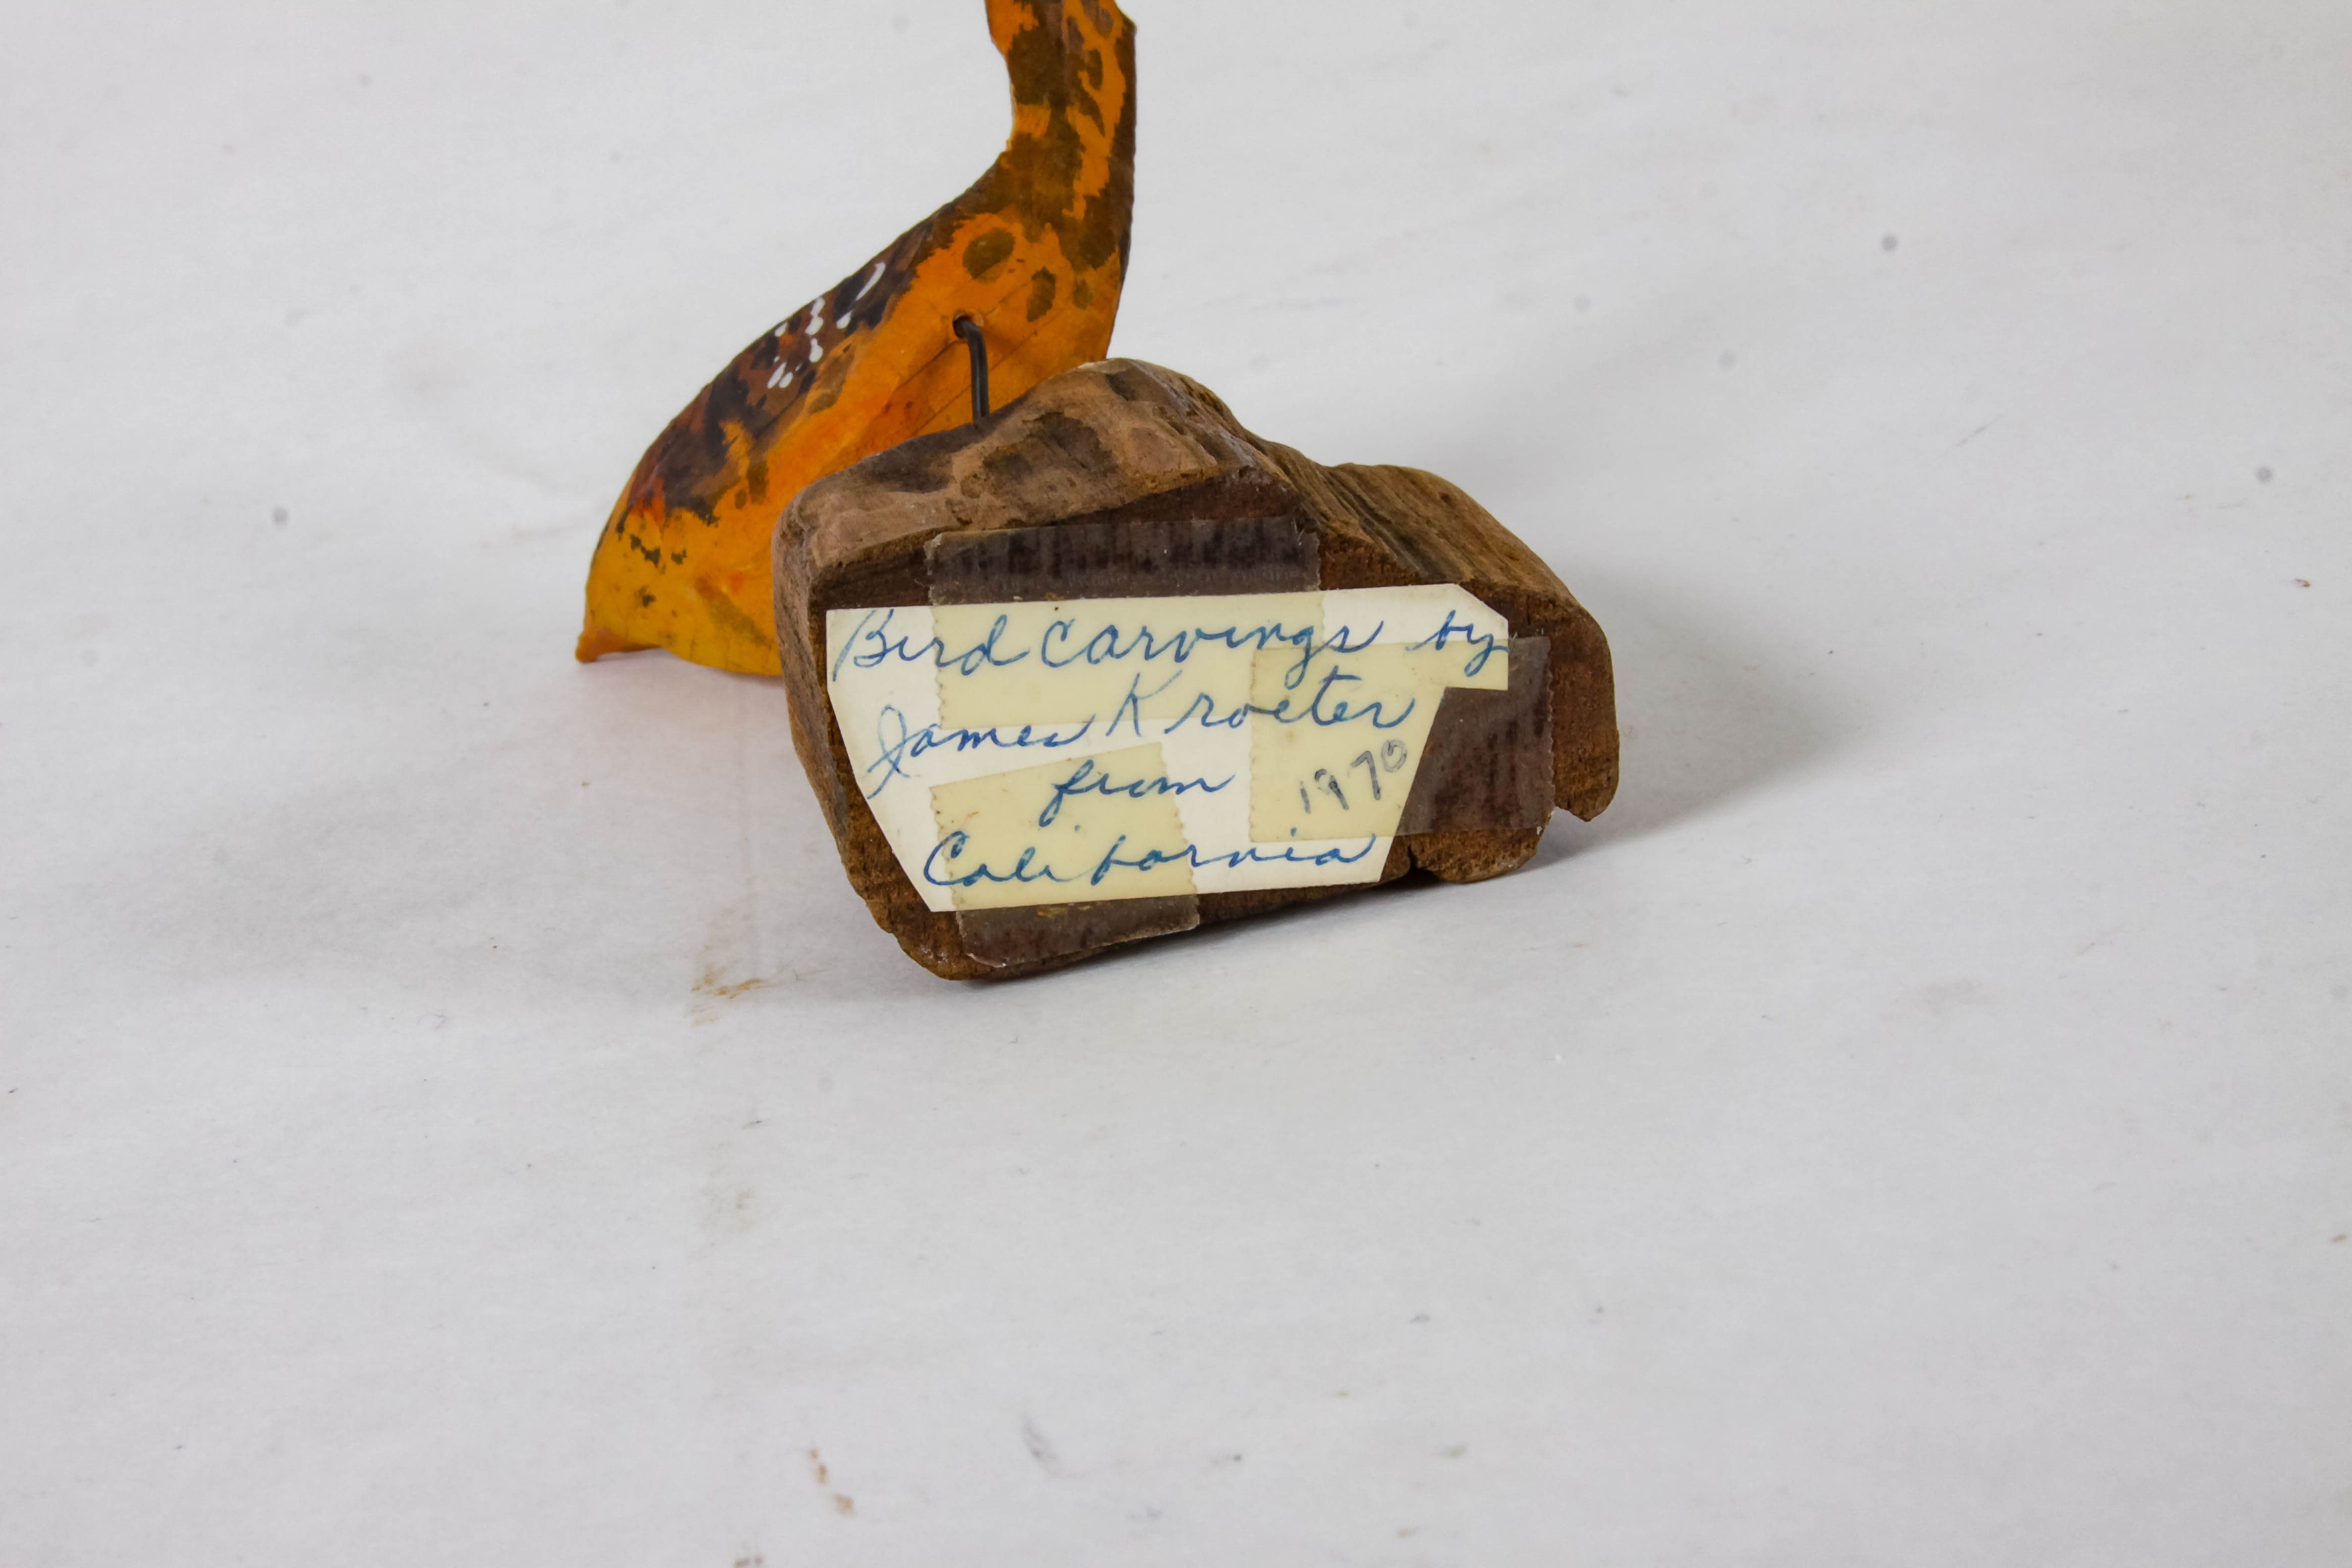 Bird Carvings by
James Kroeter
from 1970
California